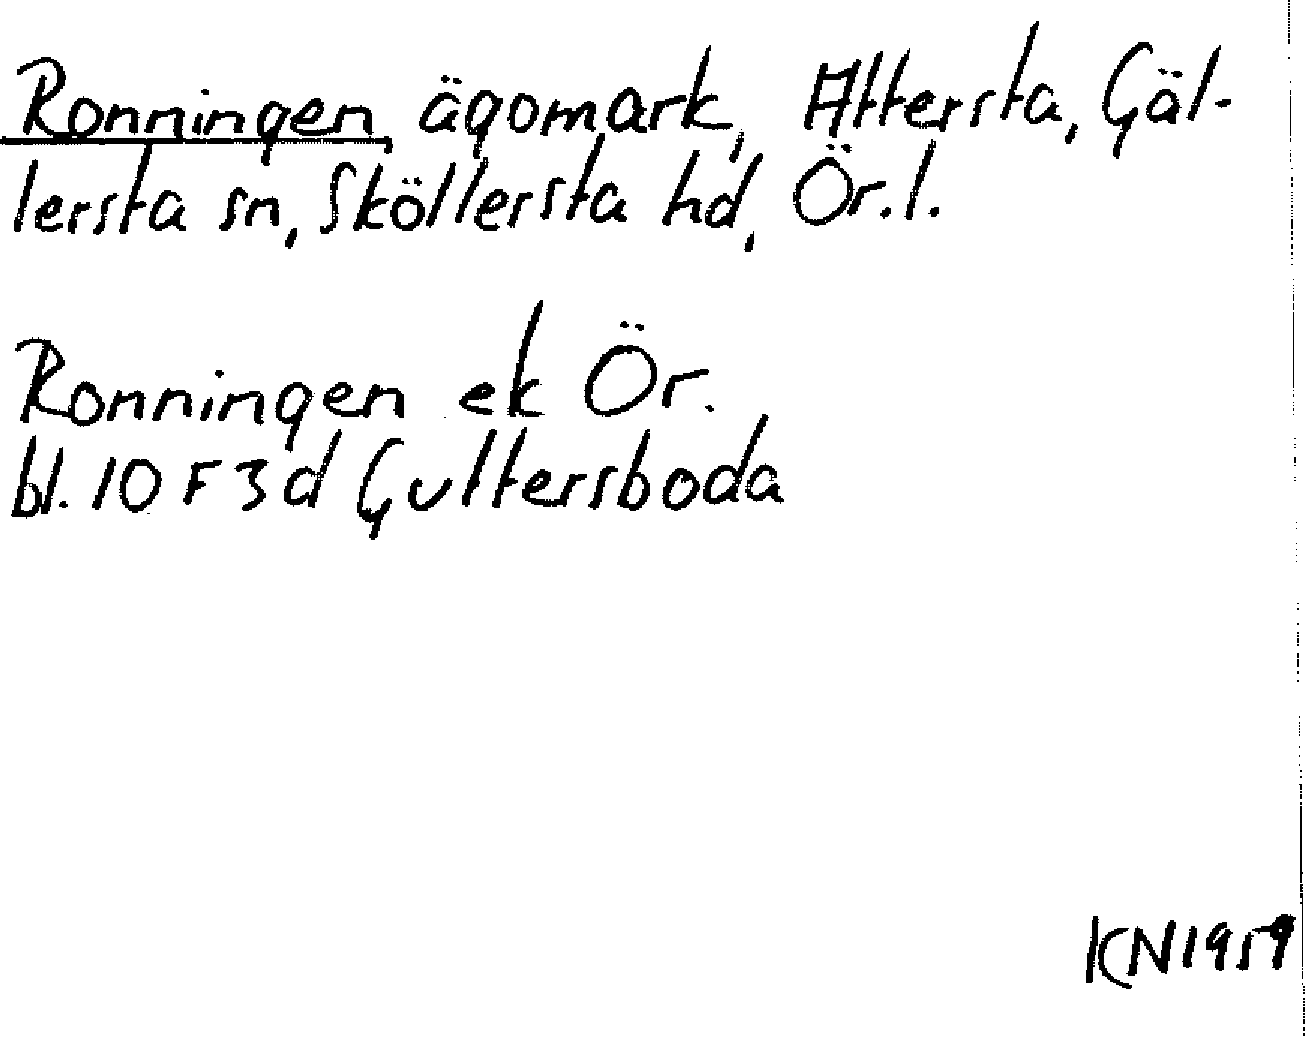 Ronningen, ägomark, Attersta, Gäl-
lersta sn, Sköllersta hd, Ör.l.
Ronningen ek Ör.
bl. 10 F 3 d Guttersboda
KN1959